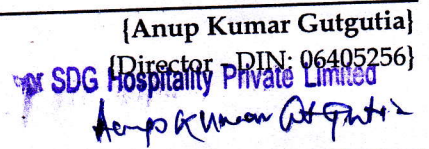 {Anup Kumar Gutgutia}
{Director - DIN: 06405256}
For SDG Hospitality Private Limited
Anup Kumar Gutgutia